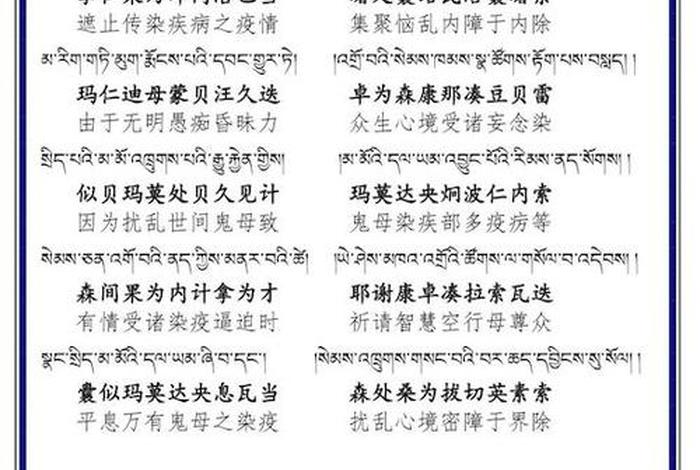 遮止传染疾病之疫情 集聚恼乱内障于内除
མ་རིག་གཏི་མུག་རྨོངས་པའི་དབང་གྱུར་ཏེ། །འགྲོ་བའི་སེམས་ཁམས་སྣ་ཚོགས་རྟོག་པས་བསླད། །
玛仁迪母蒙贝汪久迭 卓为森康那凑豆贝雷
由于无明愚痴昏昧力 众生心境受诸妄念染
སྲིད་པའི་མ་མོ་འཁྲུགས་པའི་རྒྱུ་རྐྱེན་གྱིས། །མ་མོའི་དལ་ཡམ་འབྱུང་པོའི་རིམས་ནད་སོགས། །
似贝玛莫处贝久见计 玛莫达央炯波仁内索
因为扰乱世间鬼母致 鬼母染疾部多疫疠等
སེམས་ཅན་འགོ་བའི་ནད་ཀྱིས་མནར་བའི་ཚེ། །ཡེ་ཤེས་མཁའ་འགྲོའི་ཚོགས་ལ་གསོལ་བ་འདེབས། །
森间果为内计拿为才 耶谢康卓凑拉索瓦迭
有情受诸染疫逼迫时 祈请智慧空行母尊众
སྣང་སྲིད་མ་མོའི་དལ་ཡམ་ཞི་བ་དང་། །སེམས་འཁྲུགས་གསང་བའི་བར་ཆད་དབྱིངས་སུ་སོལ། །
囊似玛莫达央息瓦当 森处桑为拔切英素索
平息万有鬼母之染疫 扰乱心境密障于界除